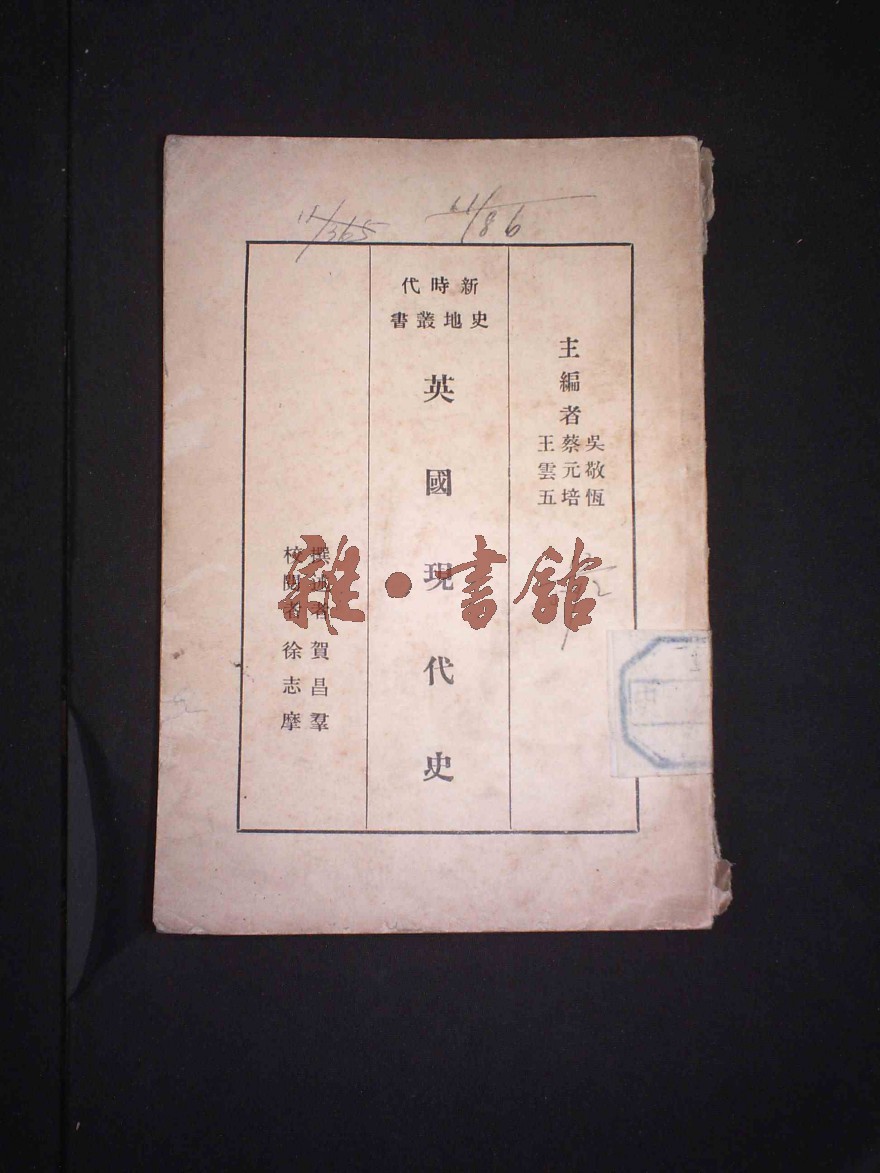 11/365
11/86
主編者
吳敬恆
蔡元培
王雲五
新時代
史地叢書
英國現代史
撰述者 賀昌羣
校閱者 徐志摩
雜·書館